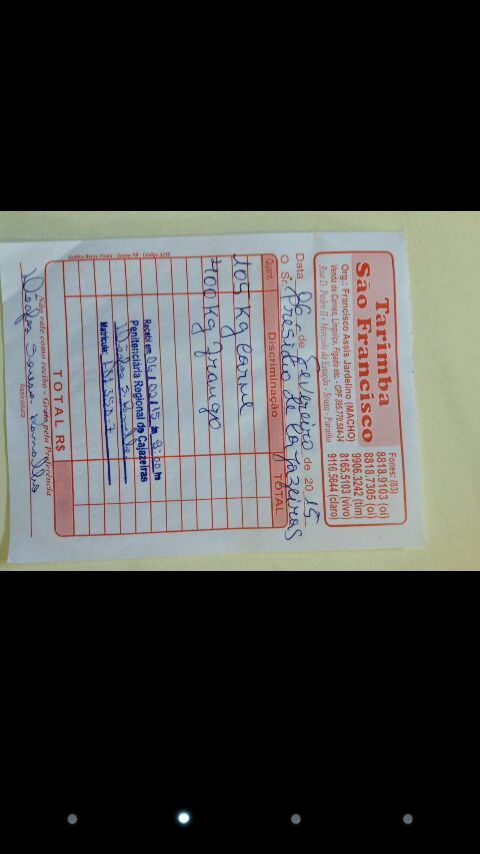 Tarimba
São Francisco
Org.: Francisco Assis Jardelino (MACHO)
Venda de Carnes, Linguiça, Figado etc. - CPF 395.770.584-34
Rua D. Pedro II - Mercado do Estado - Sousa - Paraíba
Fones: (83)
8818.9103 (oi)
8818.7305 (oi)
9906.3242 (tim)
8165.5103 (vivo)
9116.5644 (claro)
Data 06 de Fevereiro de 2015
O Sr. Presidio de Cajazeiras
Quant. Discriminação TOTAL
105 Kg Carne
400 Kg Frango
Recebi em 06/02/15 às
Penitenciaria Regional de Cajazeiras
Matricula:
TOTAL R$
Não vale como recibo - Grato pela Preferência
Assinatura